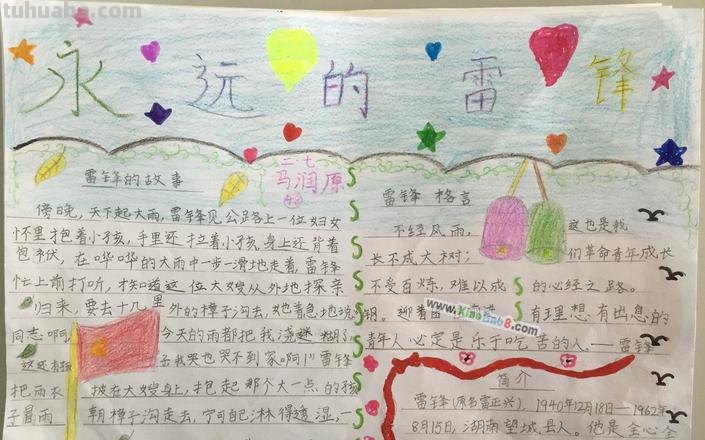 tuhuabe.com
永远的雷锋
二.七
马润原
雷锋的故事
傍晚,天下起大雨,雷锋见公路上一位妇女
怀里抱着小孩,手里还拉着小孩,身上还背着
包袱,在哗哗的大雨中一步一滑地走着,雷锋
忙上前打听,才知道这位大嫂从外地探亲
归来,要去十几里外的樟子沟去,她着急地说
同志啊 今天的雨都把我浇迷糊了
我哭也哭不到家啊!雷锋
把雨衣披在大嫂身上,抱起那个大一点的孩
子冒雨朝樟子沟走去,宁可自己淋得透湿,一
雷锋 格言
不经风雨,
长不成大树;
不受百炼,难以成
钢。
这也是我
们革命青年成长
的心经之路。
有理想.有出息的
青年人心定是乐于吃苦的人.——雷锋
www.XiaoBab8.com
简介
雷锋(原名雷正兴),1940年12月18日—1962年
8月15日,湖南望城县人。他是全心全